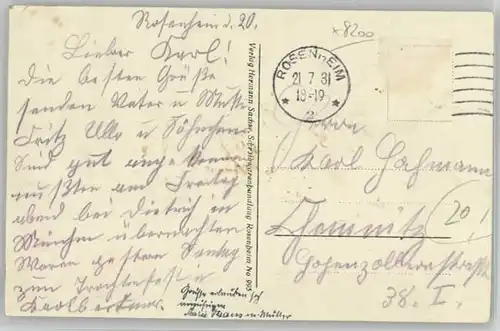 Rosenheim d. 20.
Lieber Karl!
Die besten Grüße
senden Vater u Mutter
Fritz Ulla u Söhnchen
Sind gut angekommen
mußten am Freitag
abend bei Dietrich in
München übernachten
Waren gestern Sonntag
zum Trachtenfest
Grüße erlauben sich
u. Müller
Verlag Hermann Sacher, Schreibwarenhandlung Rosenheim No 995
x8200
ROSENHEIM
21 7 31
18-19
* 2 *
Herrn
Karl Hofmann
Chemnitz
20!
Hohenzollernstraße
38. I.